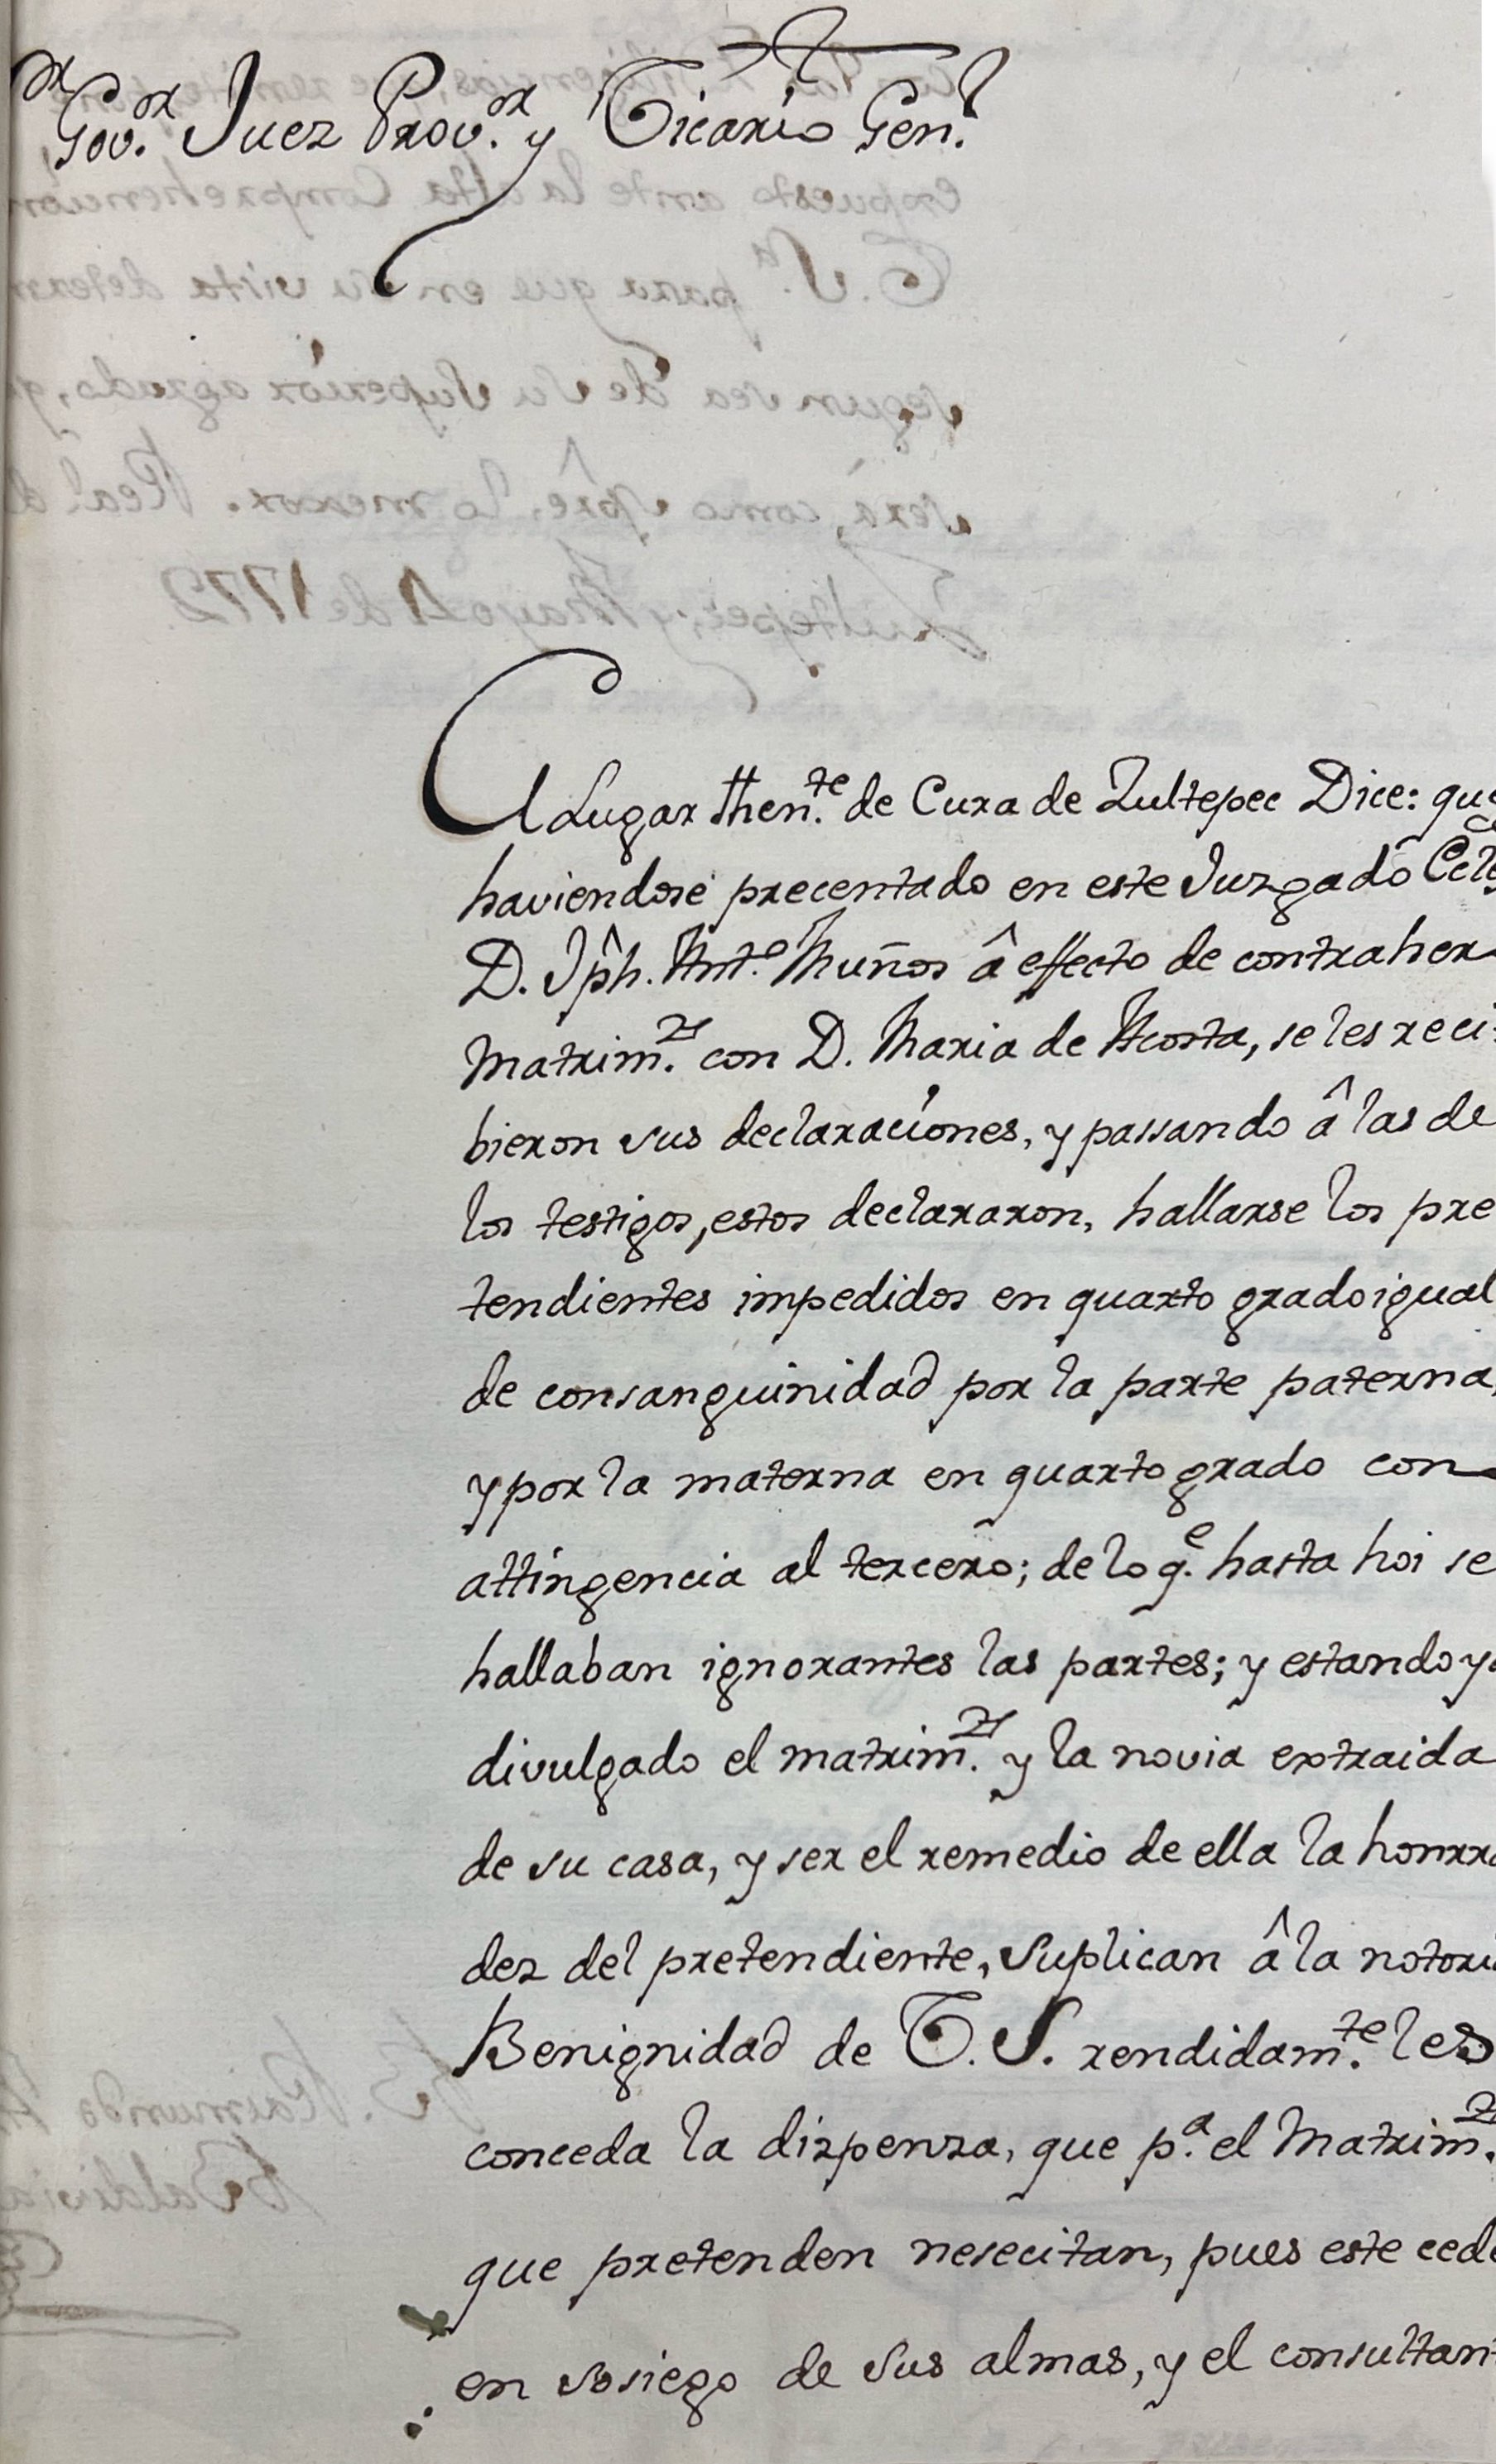 Gov.or Juez Prov.or y Vicario Gen.l
El Lugar Then.te de Cura de Zultepec Dice: que
haviendose precentado en este Juzgado
D. Jph. Ant.o Muños â effecto de contraher
Matrim.o con D. Maria de Acosta, se les reci-
bieron sus declaraciones, y passando â las de
los testigos, estos declararon, hallarse los pre
tendientes impedidos en quarto grado igual
de consanguinidad por la parte paterna,
y por la materna en quarto grado con
attingencia al tercero; de lo q.e hasta hoi se
hallaban ignorantes las partes; y estando ya
divulgado el matrim.o y la novia extraida
de su casa, y ser el remedio de ella la honrra
dez del pretendiente, Suplican â la notoria
Benignidad de V. S. rendidam.te les
conceda la dispensa, que p.a el Matrim.o
que pretenden nesecitan, pues este cede
en sosiego de sus almas, y el consultan
expuesto ante la alta Comprehencion
V. S.a para que en su vista determ
segun sea de su Superior agrado, q
será, como spre, lo mexor. Real d
Zultepec, y Mayo 4 de 1772
B. Raimundo
Valdivia